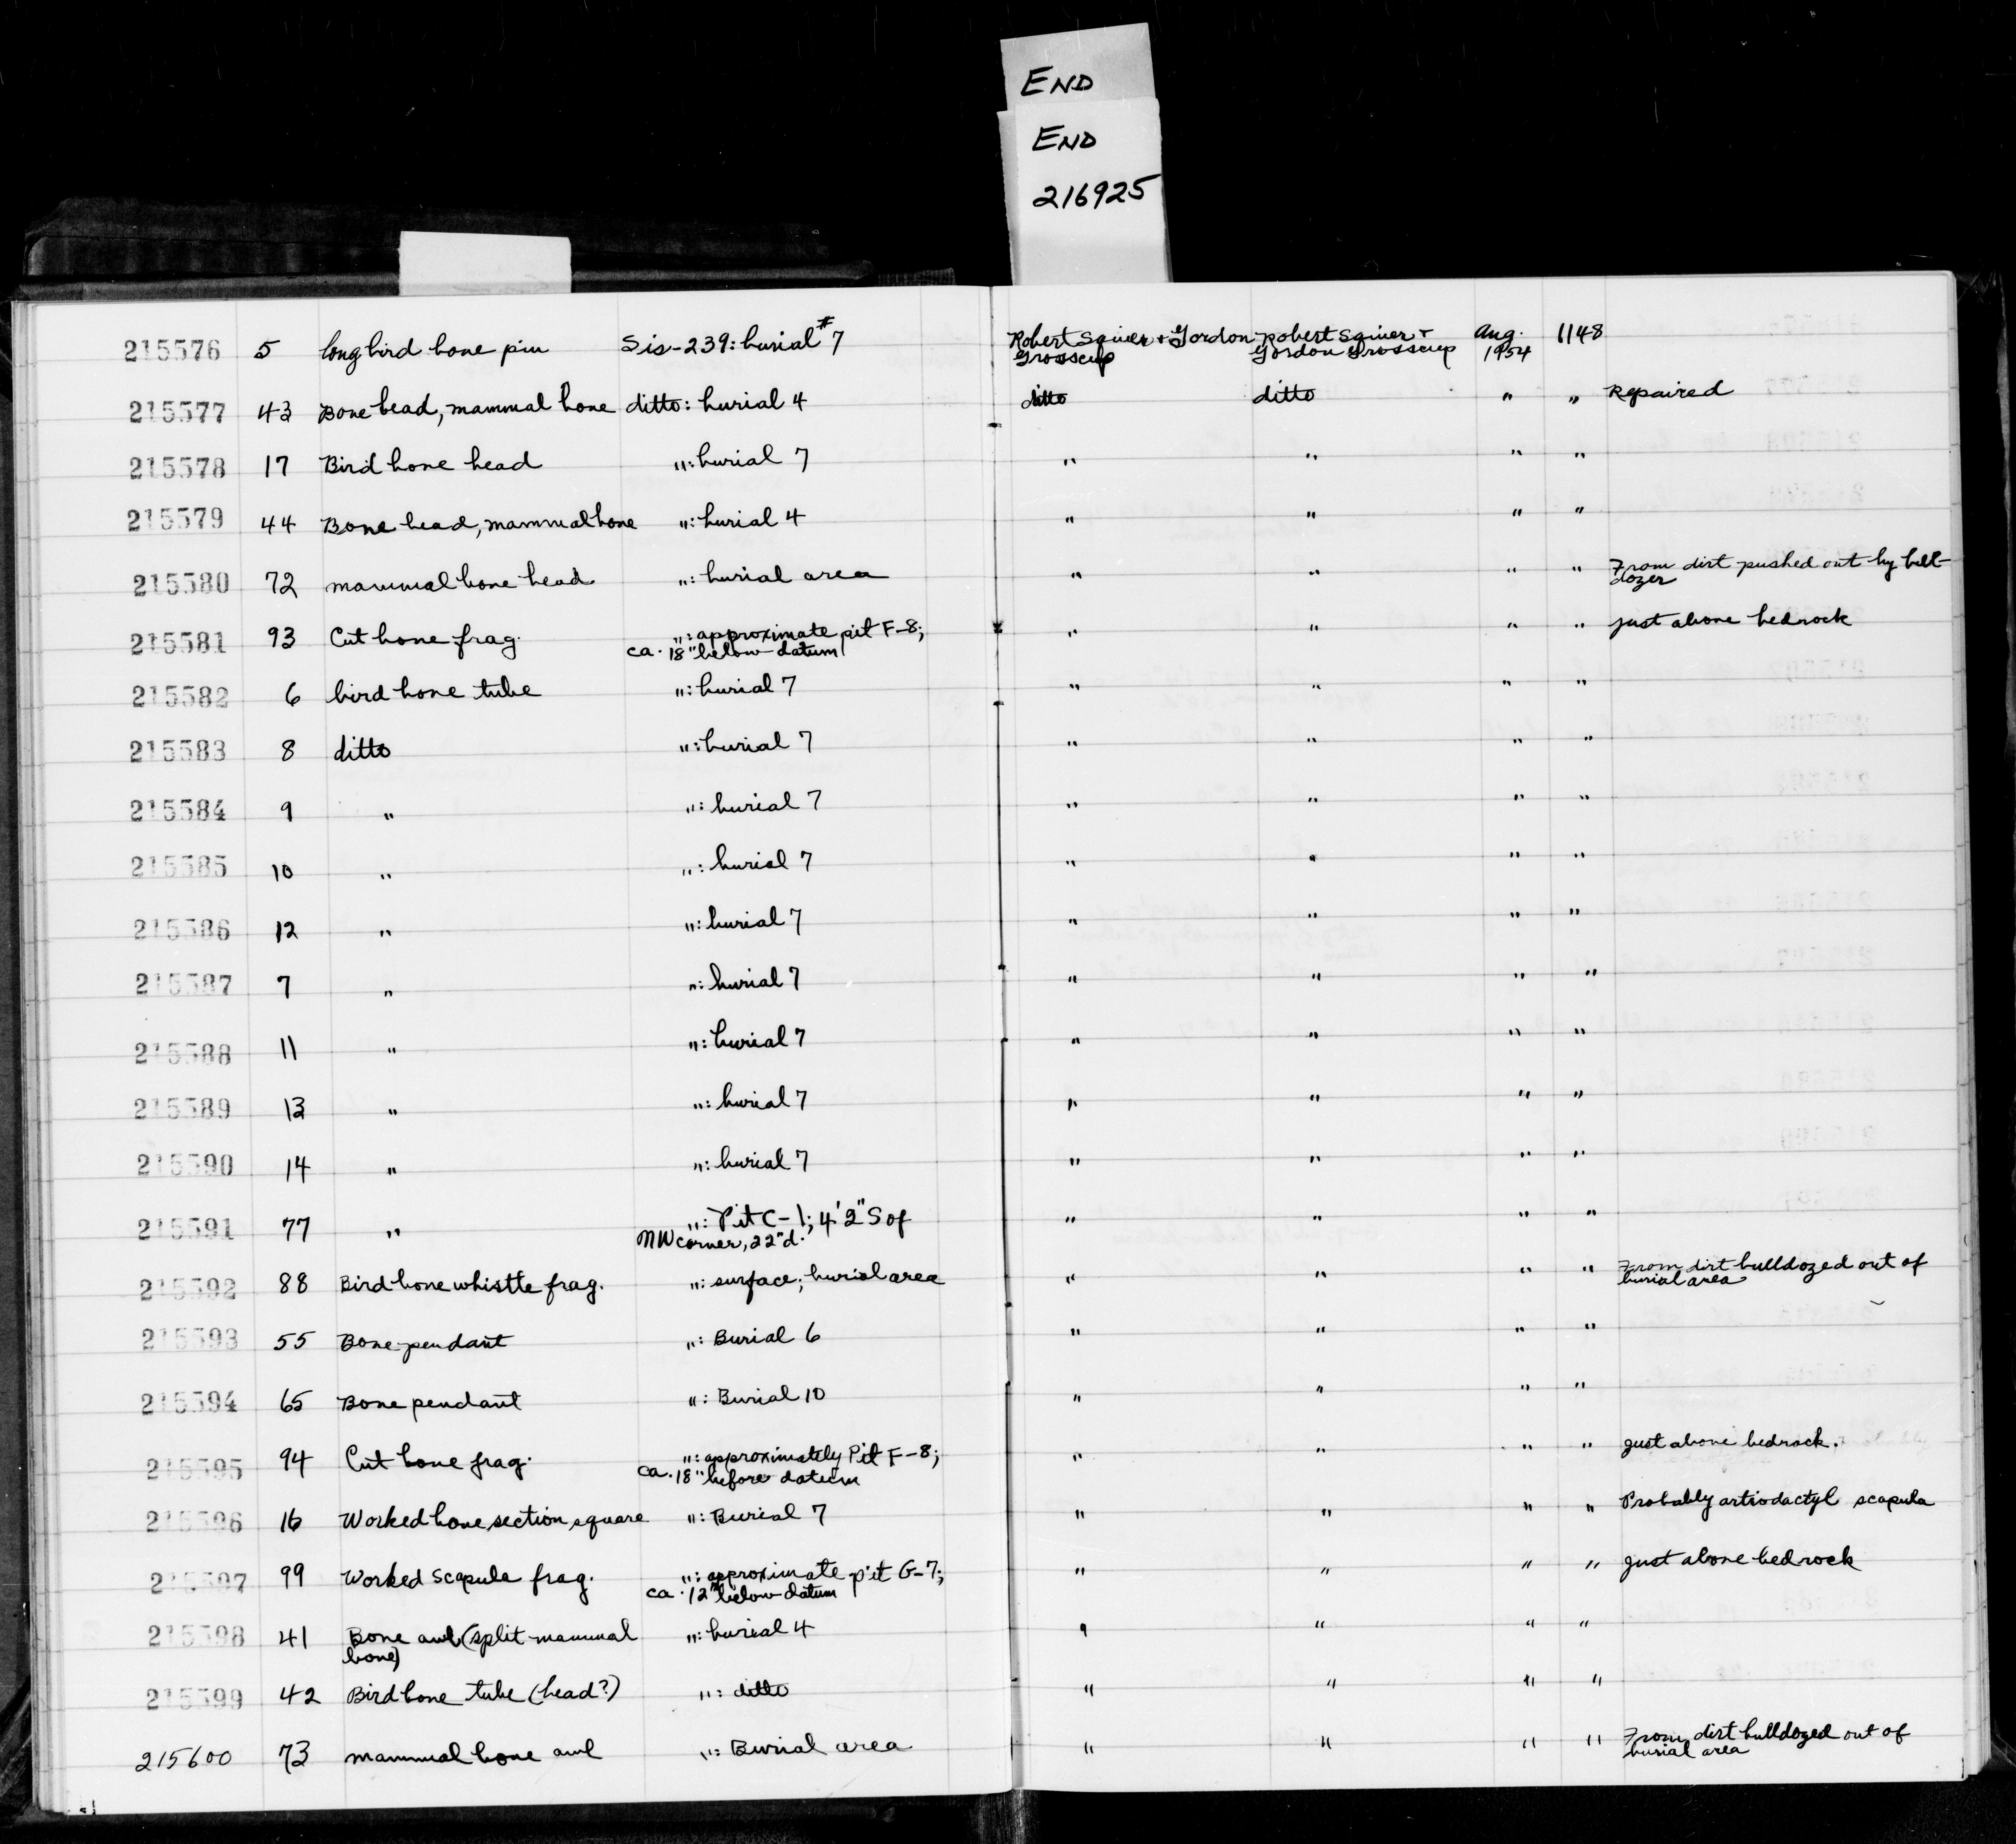 END
END
216925
215576 5 long bird bone pin Sis-239: burial #7 Robert Squier + Gordon Robert Squier + Aug. 1148
Grosscup Gordon Grosscup 1954
215577 43 Bone bead, mammal bone ditto: burial 4 ditto ditto " " Repaired
215578 17 Bird bone bead ": burial 7 " " " "
215579 44 Bone bead, mammal bone ": burial 4 " " " "
215580 72 mammal bone bead ": burial area " " " " From dirt pushed out by bull-
dozer
215581 93 Cut bone frag. ": approximate pit F-8; " " " " just above bedrock
ca. 18" below datum
215582 6 bird bone tube ": burial 7 " " " "
215583 8 ditto ": burial 7 " " " "
215584 9 " ": burial 7 " " " "
215585 10 " ": burial 7 " " " "
215586 12 " ": burial 7 " " " "
215587 7 " ": burial 7 " " " "
215588 11 " ": burial 7 " " " "
215589 13 " ": burial 7 " " " "
215590 14 " ": burial 7 " " " "
215591 77 " ": Pit C-1; 4'2" S of " " " "
NW corner, 22" d.
215592 88 Bird bone whistle frag. ": surface; burial area " " " " From dirt bulldozed out of
burial area
215593 55 Bone pendant ": Burial 6 " " " "
215594 65 Bone pendant ": Burial 10 " " " "
215595 94 Cut bone frag. ": approximately Pit F-8; " " " " just above bedrock.
ca. 18" before datum
215596 16 Worked bone section, square ": Burial 7 " " " " Probably artiodactyl scapula
215597 99 Worked scapula frag. ": approximate pit G-7; " " " " just above bedrock
ca. 12" below datum
215598 41 Bone awl (split mammal ": burial 4 " " " "
bone)
215599 42 Bird bone tube (bead?) ": ditto " " " "
215600 73 mammal bone awl ": Burial area " " " " From dirt bulldozed out of
burial area